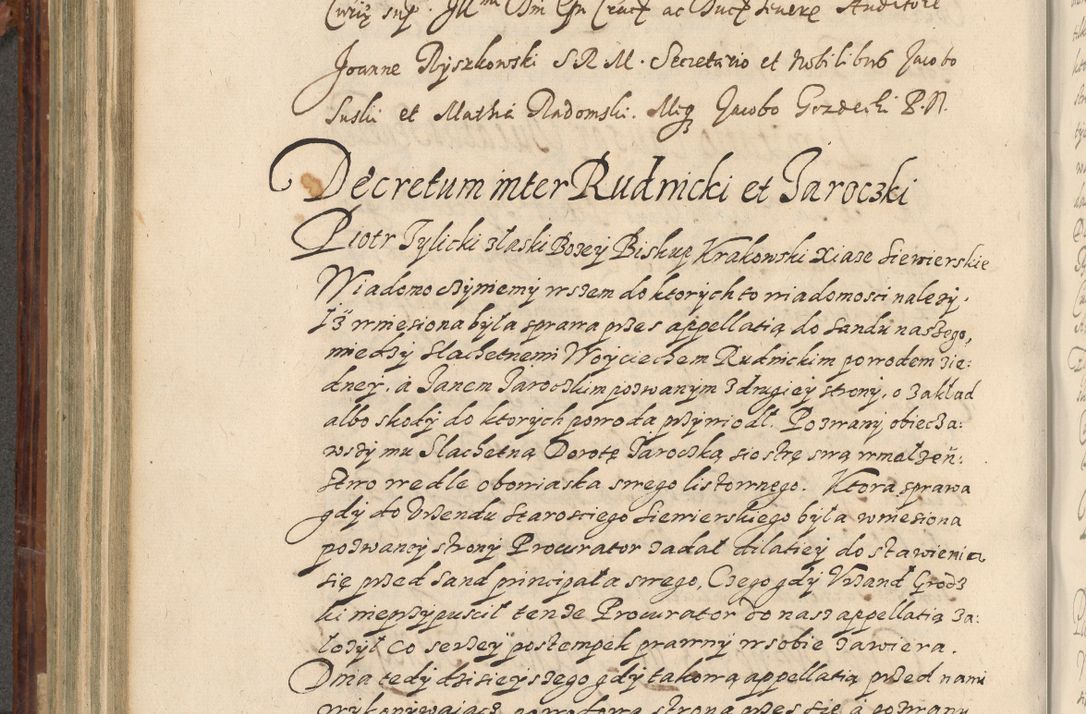 Joanne Ryszkowski S R M. Secretario et Nobilibus Jacobo
Suski et Mathia Radomski. Mcg Jacobo Gozdecki P. N.
Decretum inter Rudnicki et Jaroczki
Piotr Tylicki zlaski Bozey Biskup Krakowski Xiaze Siewierskie
Wiadomo czyniemy wszem do ktorych to wiadomosci nalezy.
Jz wniesiona była sprawa przes appellatią do Sandu naszego,
miedzy Slachetnemi Woyciechem Rudnickim powodem zie:
dney, a Janem Jaroczkim pozwanym z drugiey strony, o zakład
albo skody do ktorych powoda przywiodł. Pozwany obiecza:
wszy mu Slachetną Dorotę Jaroczką siostrę swą w małzeń:
stwo wedle obowiaska swego listownego. Ktora sprawa
gdy do Vrzendu Starosciego Siewierskiego była wniesiona
pozwaney strony Procurator zadał dilatiey do stawienia
się przed Sand principała swego, Czego gdy Vrzand Grodz
ki nieprzypuscił tenze Procurator do nas appellatią za:
lozył co serzey postempek prawny w sobie zawiera.
Dnia tedy dzisieyszego gdy takową appellatią przed nami